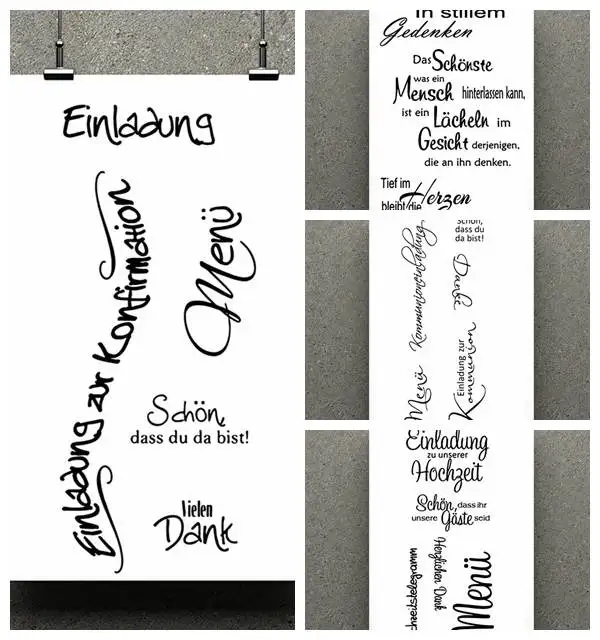 Einladung
Einladung zur Konfirmation
Menü
Schön,
dass du da bist!
Vielen
Dank
In stillem
Gedenken
Das Schönste
was ein
Mensch hinterlassen kann,
ist ein Lächeln im
Gesicht derjenigen,
die an ihn denken.
Tief im
Herzen
bleibt die
Kommunioneinladung
Schön,
dass du
da bist!
Danke
Menü
Einladung zur
Kommunion
Einladung
zu unserer
Hochzeit
Schön, dass ihr
unsere Gäste seid
chzeitstelegramm
Herzlichen Dank
Menü